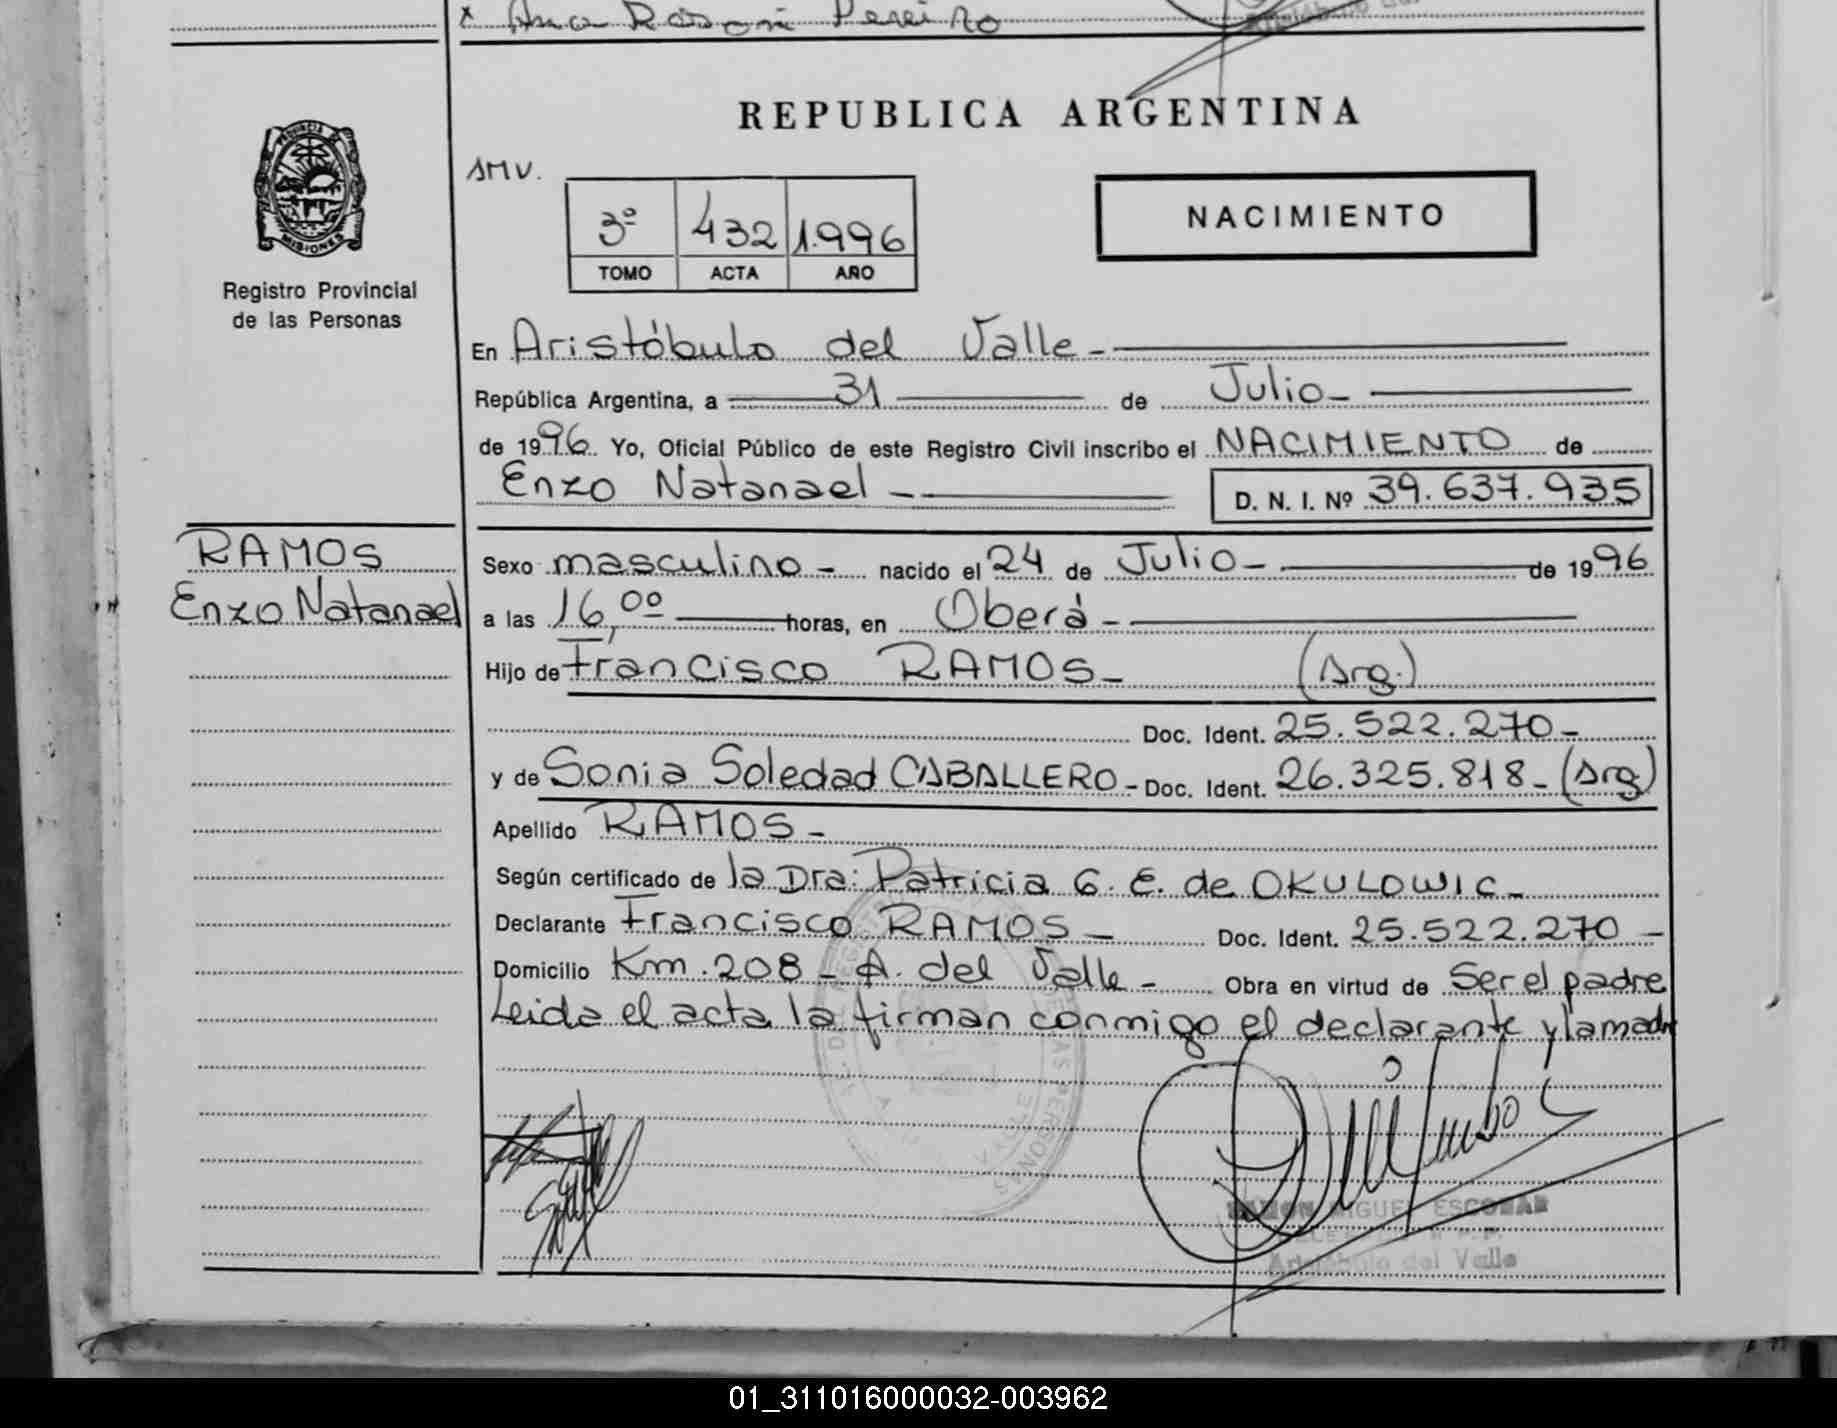 x Ana Rosa Pereiro
REPUBLICA ARGENTINA
PROVINCIA DE
MISIONES
Registro Provincial
de las Personas
SMV.
3º 432 1.996
TOMO ACTA AÑO
NACIMIENTO
En Aristóbulo del Valle -
República Argentina, a 31 de Julio -
de 1996. Yo, Oficial Público de este Registro Civil inscribo el NACIMIENTO de
Enzo Natanael - D. N. I. Nº 39.637.935
RAMOS
Enzo Natanael
Sexo masculino - nacido el 24 de Julio - de 1996
a las 16,00 horas, en Oberá -
Hijo de Francisco RAMOS - (Arg.)
Doc. Ident. 25.522.270 -
y de Sonia Soledad CABALLERO - Doc. Ident. 26.325.818 - (Arg)
Apellido RAMOS -
Según certificado de la Dra: Patricia G. E. de OKULOWIC -
Declarante Francisco RAMOS - Doc. Ident. 25.522.270 -
Domicilio Km. 208 - A. del Valle - Obra en virtud de Ser el padre
Leida el acta la firman conmigo el declarante y la madre
RAMON MIGUEL ESCOBAR
Aristóbulo del Valle
01_311016000032-003962